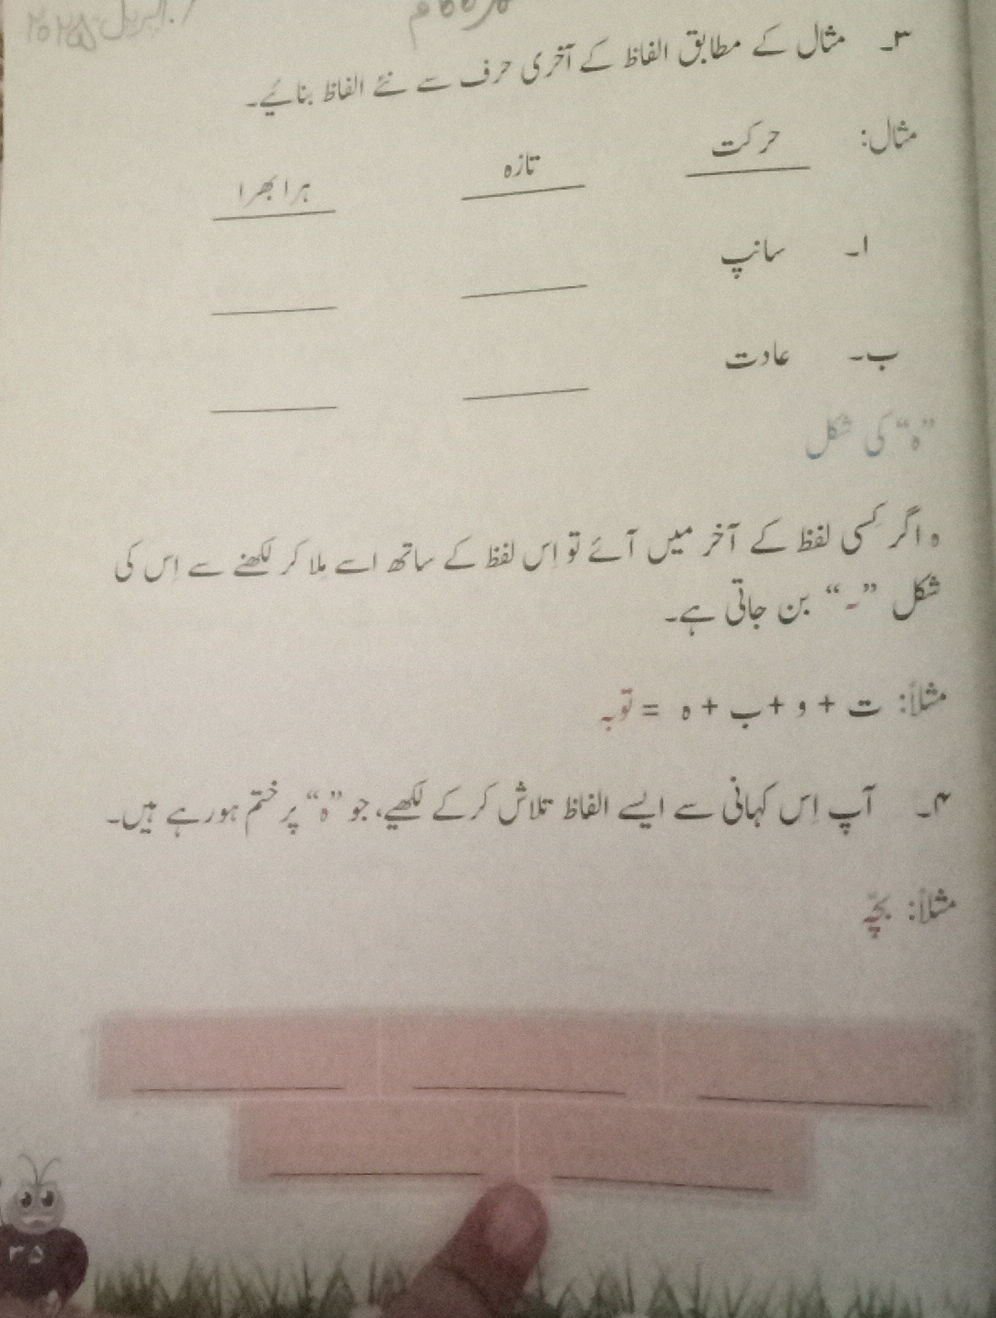 اپریل ۲۰۲۵
۳۔ مثال کے مطابق الفاظ کے آخری حرف سے نئے الفاظ بنائیے۔
مثال: حرکت تازہ ہرا بھرا
ا۔ سانپ
ب۔ عادت
”ہ“ کی شکل
ہ اگر کسی لفظ کے آخر میں آئے تو اِس لفظ کے ساتھ اسے ملا کر لکھنے سے اِس کی
شکل ”ـہ“ بن جاتی ہے۔
مثلاً: ت + و + ب + ہ = توبہ
۴۔ آپ اِس کہانی سے ایسے الفاظ تلاش کرکے لکھیے، جو ”ہ“ پر ختم ہو رہے ہیں۔
مثلاً: بچّہ
۳۵